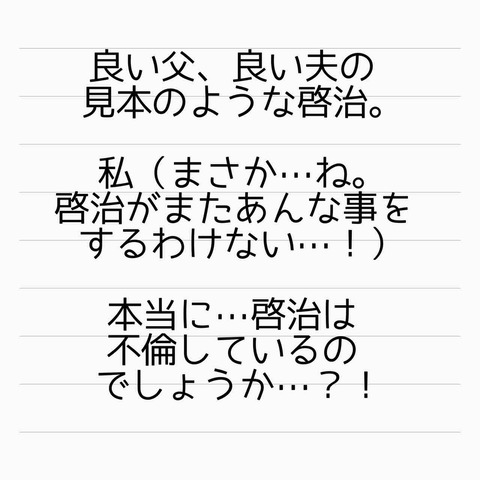 良い父、良い夫の
見本のような啓治。
私（まさか…ね。
啓治がまたあんな事を
するわけない…！）
本当に…啓治は
不倫しているの
でしょうか…？！